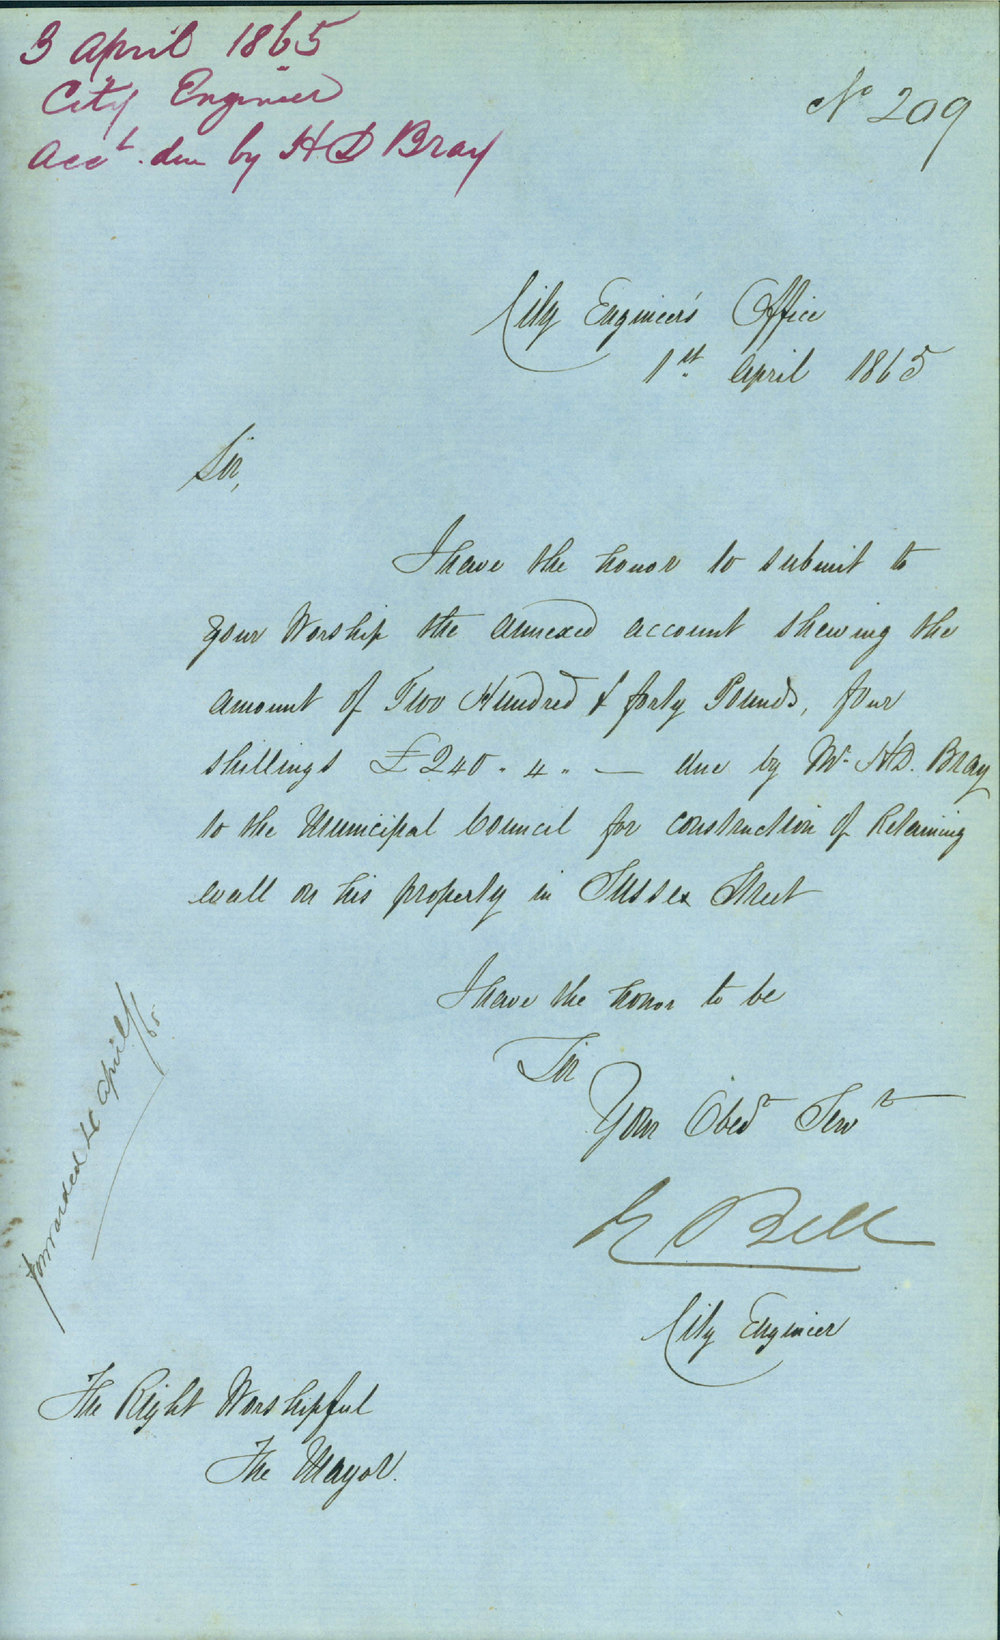 3 April 1865
City Engineer
Acct. due by H D Bray
No 209
City Engineer's Office
1st. April 1865
Sir,
I have the honor to submit to
your Worship the annexed account shewing the
amount of Two Hundred & forty Pounds, four
shillings £240 " 4 " — due by Mr. H.D. Bray
to the Municipal Council for construction of Retaining
wall on his property in Sussex Street
I have the honor to be
Sir
Your Obedt Servt
E Bell
City Engineer
forwarded April /65
The Right Worshipful
The Mayor.